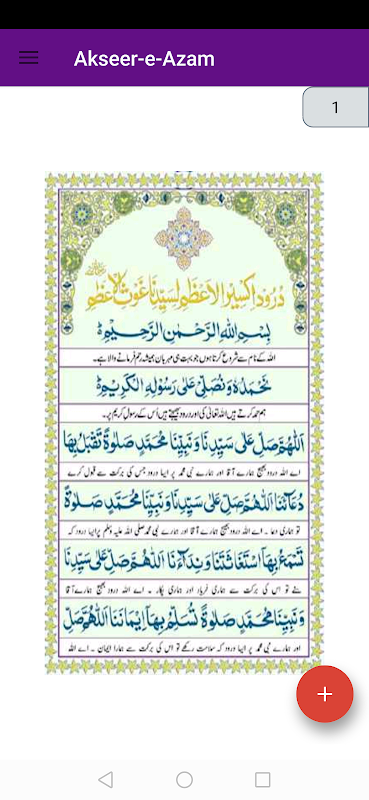 Akseer-e-Azam
1
دُرُود اِکسِیرِ الاَعظَم لِسَیِّدِنَا غَوثِ الاَعظَم
بِسْمِ اللهِ الرَّحْمٰنِ الرَّحِيْمِ
اللہ کے نام سے شروع کرتا ہوں جو بہت ہی مہربان ہمیشہ رحم فرمانے والا ہے۔
نَحْمَدُهٗ وَنُصَلِّىْ عَلٰى رَسُوْلِهِ الْكَرِيْمِ
ہم حمد کرتے ہیں اللہ تعالیٰ کی اور درود بھیجتے ہیں اُس کے رسول کریم پر۔
اَللّٰهُمَّ صَلِّ عَلٰى سَيِّدِنَا وَنَبِيِّنَا مُحَمَّدٍ صَلٰوةً تَقْبَلُ بِهَا
اے اللہ درود بھیج ہمارے آقا اور ہمارے نبی محمد پر ایسا درود جس کی برکت سے قبول کرے
دُعَآئَنَا اَللّٰهُمَّ صَلِّ عَلٰى سَيِّدِنَا وَنَبِيِّنَا مُحَمَّدٍ صَلٰوةً
تو ہماری دعا ۔ اے اللہ درود بھیج ہمارے آقا اور ہمارے نبی محمد صلی اللہ علیہ وسلم پر ایسا درود کہ
تَسْمَعُ بِهَا اسْتِغَاثَتَنَا وَنِدَآئَنَا اَللّٰهُمَّ صَلِّ عَلٰى سَيِّدِنَا
سنے تو اس کی برکت سے ہماری فریاد اور ہماری پکار ۔ اے اللہ درود بھیج ہمارے آقا
وَنَبِيِّنَا مُحَمَّدٍ صَلٰوةً تُسَلِّمُ بِهَا اِيْمَانَنَا اَللّٰهُمَّ صَلِّ
اور ہمارے نبی محمد پر ایسا درود کہ سلامت رکھے تو اس کی برکت سے ہمارا ایمان ۔ اے اللہ